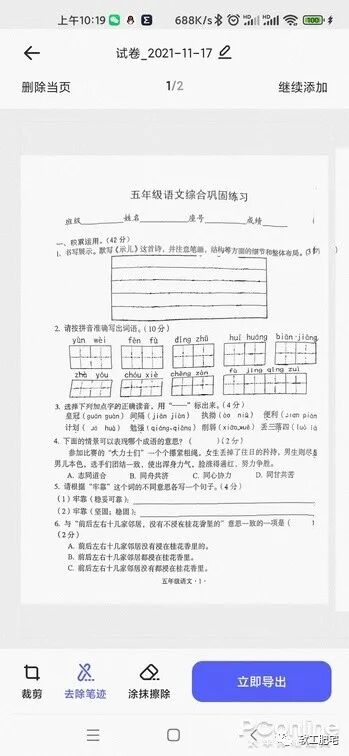 上午10:19 688K/s 100
试卷_2021-11-17
删除当页 1/2 继续添加
五年级语文综合巩固练习
班级 姓名 座号 成绩
一、积累运用。(42分)
1. 书写展示。默写《示儿》这首诗，并注意笔画、结构等方面的细节和整体布局。
2. 请按拼音准确写出词语。(10分)
yùn wèi fèn fù dīng zhǔ huī huáng biān jiāng
zhà yóu chóu xiè chēng zàn fǔ jīng qīng zuì
3. 选择下列加点字的正确读音，用“——”标出来。(4分)
皇冠(guān guàn) 间隔(jiān jiàn) 便利
计划 勉强(qiáng qiǎng) 削弱 丢三落四
4. 下面的情景可以表现哪个成语的意思？( )(2分)
参加比赛的“大力士们”一个个摞紧粗绳，女生丢掉了往日的矜持，男生则尽显
男儿本色，选手们团结一致，使出浑身力气，脸涨得通红，努力争胜。
A. 志同道合 B. 同舟共济 C. 同心协力 D. 同甘共苦
5. 请根据“牢靠”这个词的不同意思各写一个句子。(4分)
(1) 牢靠(稳妥可靠)：
(2) 牢靠(坚固；稳固)：
6. 与“前后左右十几家邻居，没有不浸在桂花香里的”意思一致的一项是(
(2分)
A. 前后左右十几家邻居没有浸在桂花香里。
B. 前后左右十几家邻居都浸在桂花香里。
C. 前后左右十几家邻居都没浸在桂花香里。
五年级语文·1·
裁剪 去除笔迹 涂抹擦除 立即导出
PConline
软工肥宅